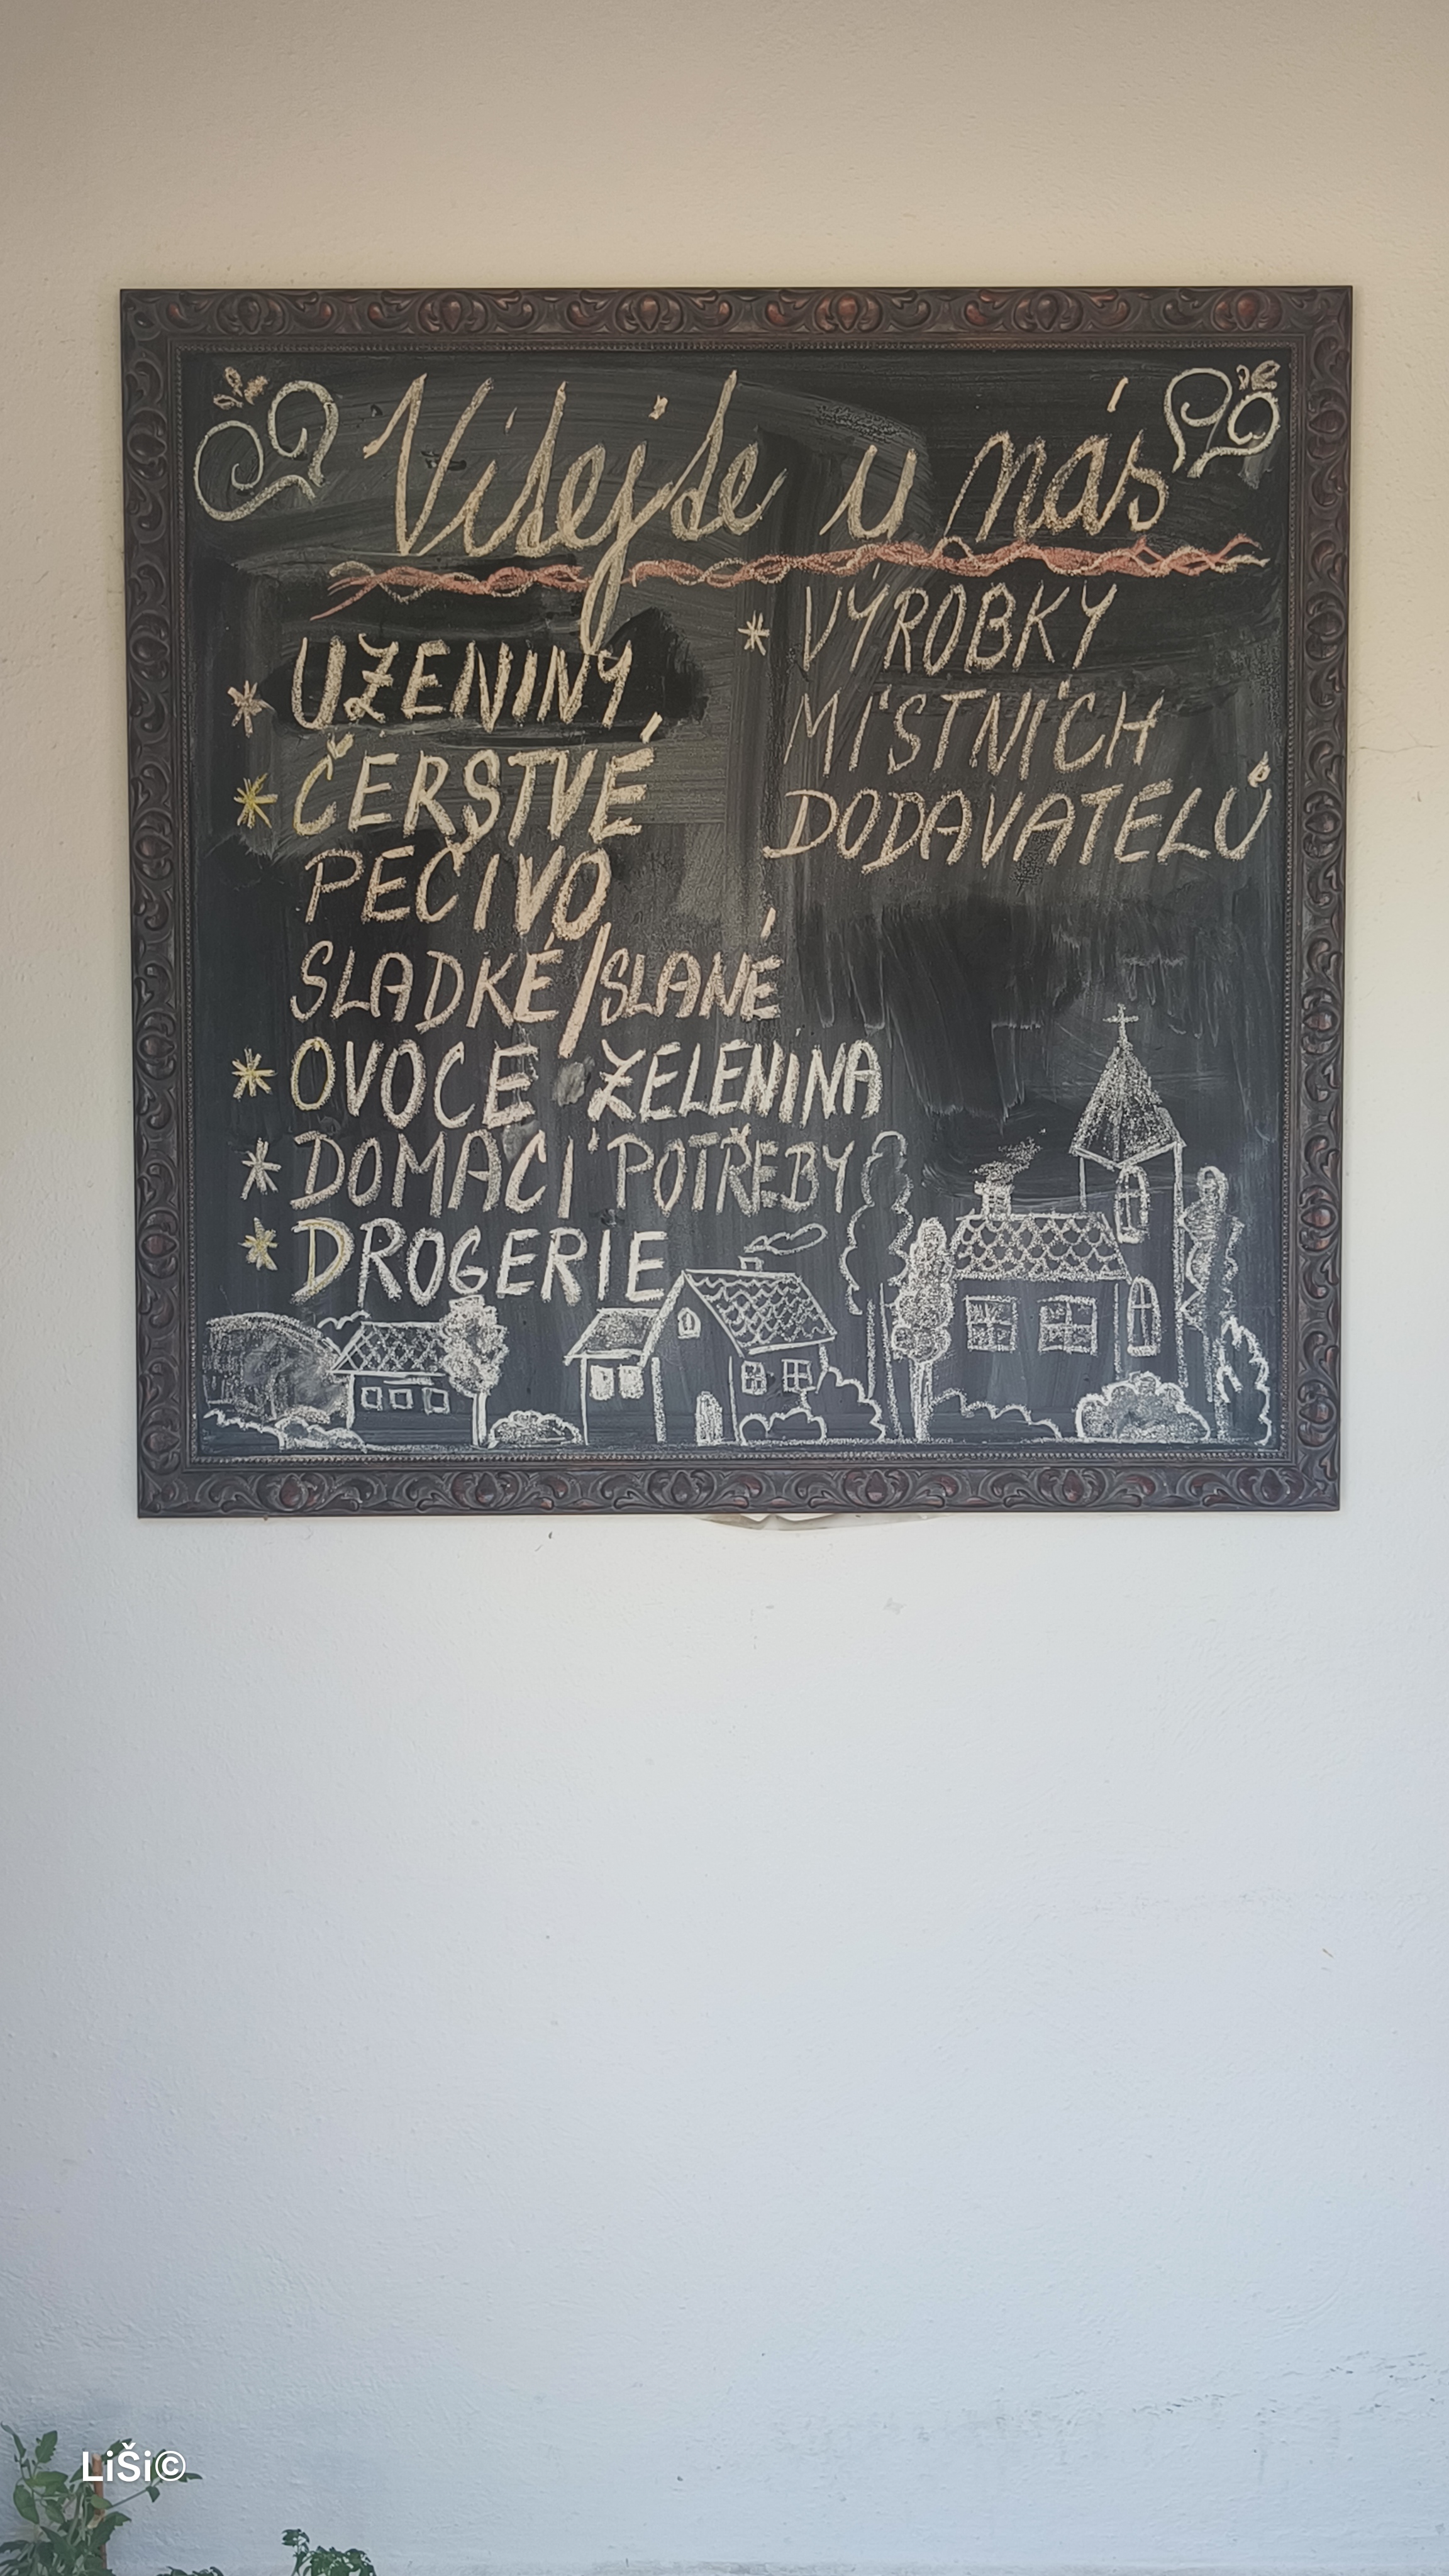 Vítejte u nás
* UZENINY
* ČERSTVÉ
PEČIVO
SLADKÉ/SLANÉ
* OVOCE ZELENINA
* DOMÁCÍ POTŘEBY
* DROGERIE
* VÝROBKY
MÍSTNÍCH
DODAVATELŮ
LiŠi©